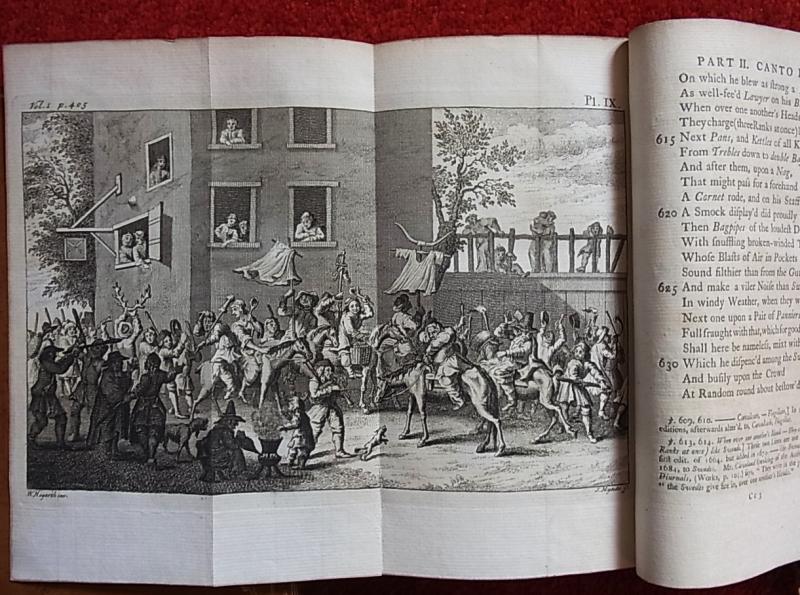 Vol. 1 p. 405
Pl. IX.
W. Hogarth inv.
PART II. CANTO
On which he blew as strong a
As well-fee'd Lawyer on his
When over one another's Heads
They charge (three Ranks at once)
615 Next Pans, and Kettles of all
From Trebles down to double
And after them, upon a Nag,
That might pass for a forehand
A Cornet rode, and on his Staff
620 A Smock display'd did proudly
Then Bagpipes of the loudest
With snuffling broken-winded
Whose Blasts of Air in Pockets
Sound filthier than from the
625 And make a viler Noise than
In windy Weather, when they
Next one upon a Pair of Panniers
Full fraught with that, which for good
Shall here be nameless, mixt with
630 Which he dispenc'd among the
And busily upon the Crowd
At Random round about bestow'd
℣. 609, 610.
editions, afterwards alter'd to,
℣. 613, 614. When over one another's Head
Ranks at once) like Sweads.] These two Lines are not
first edit. of 1664. but added in 1674.
1684, to Swedes. Mr. Cleveland speaking of the
Diurnals, (Works, p.
" the Swedes give fire in, over one another's Heads."
Cc 3